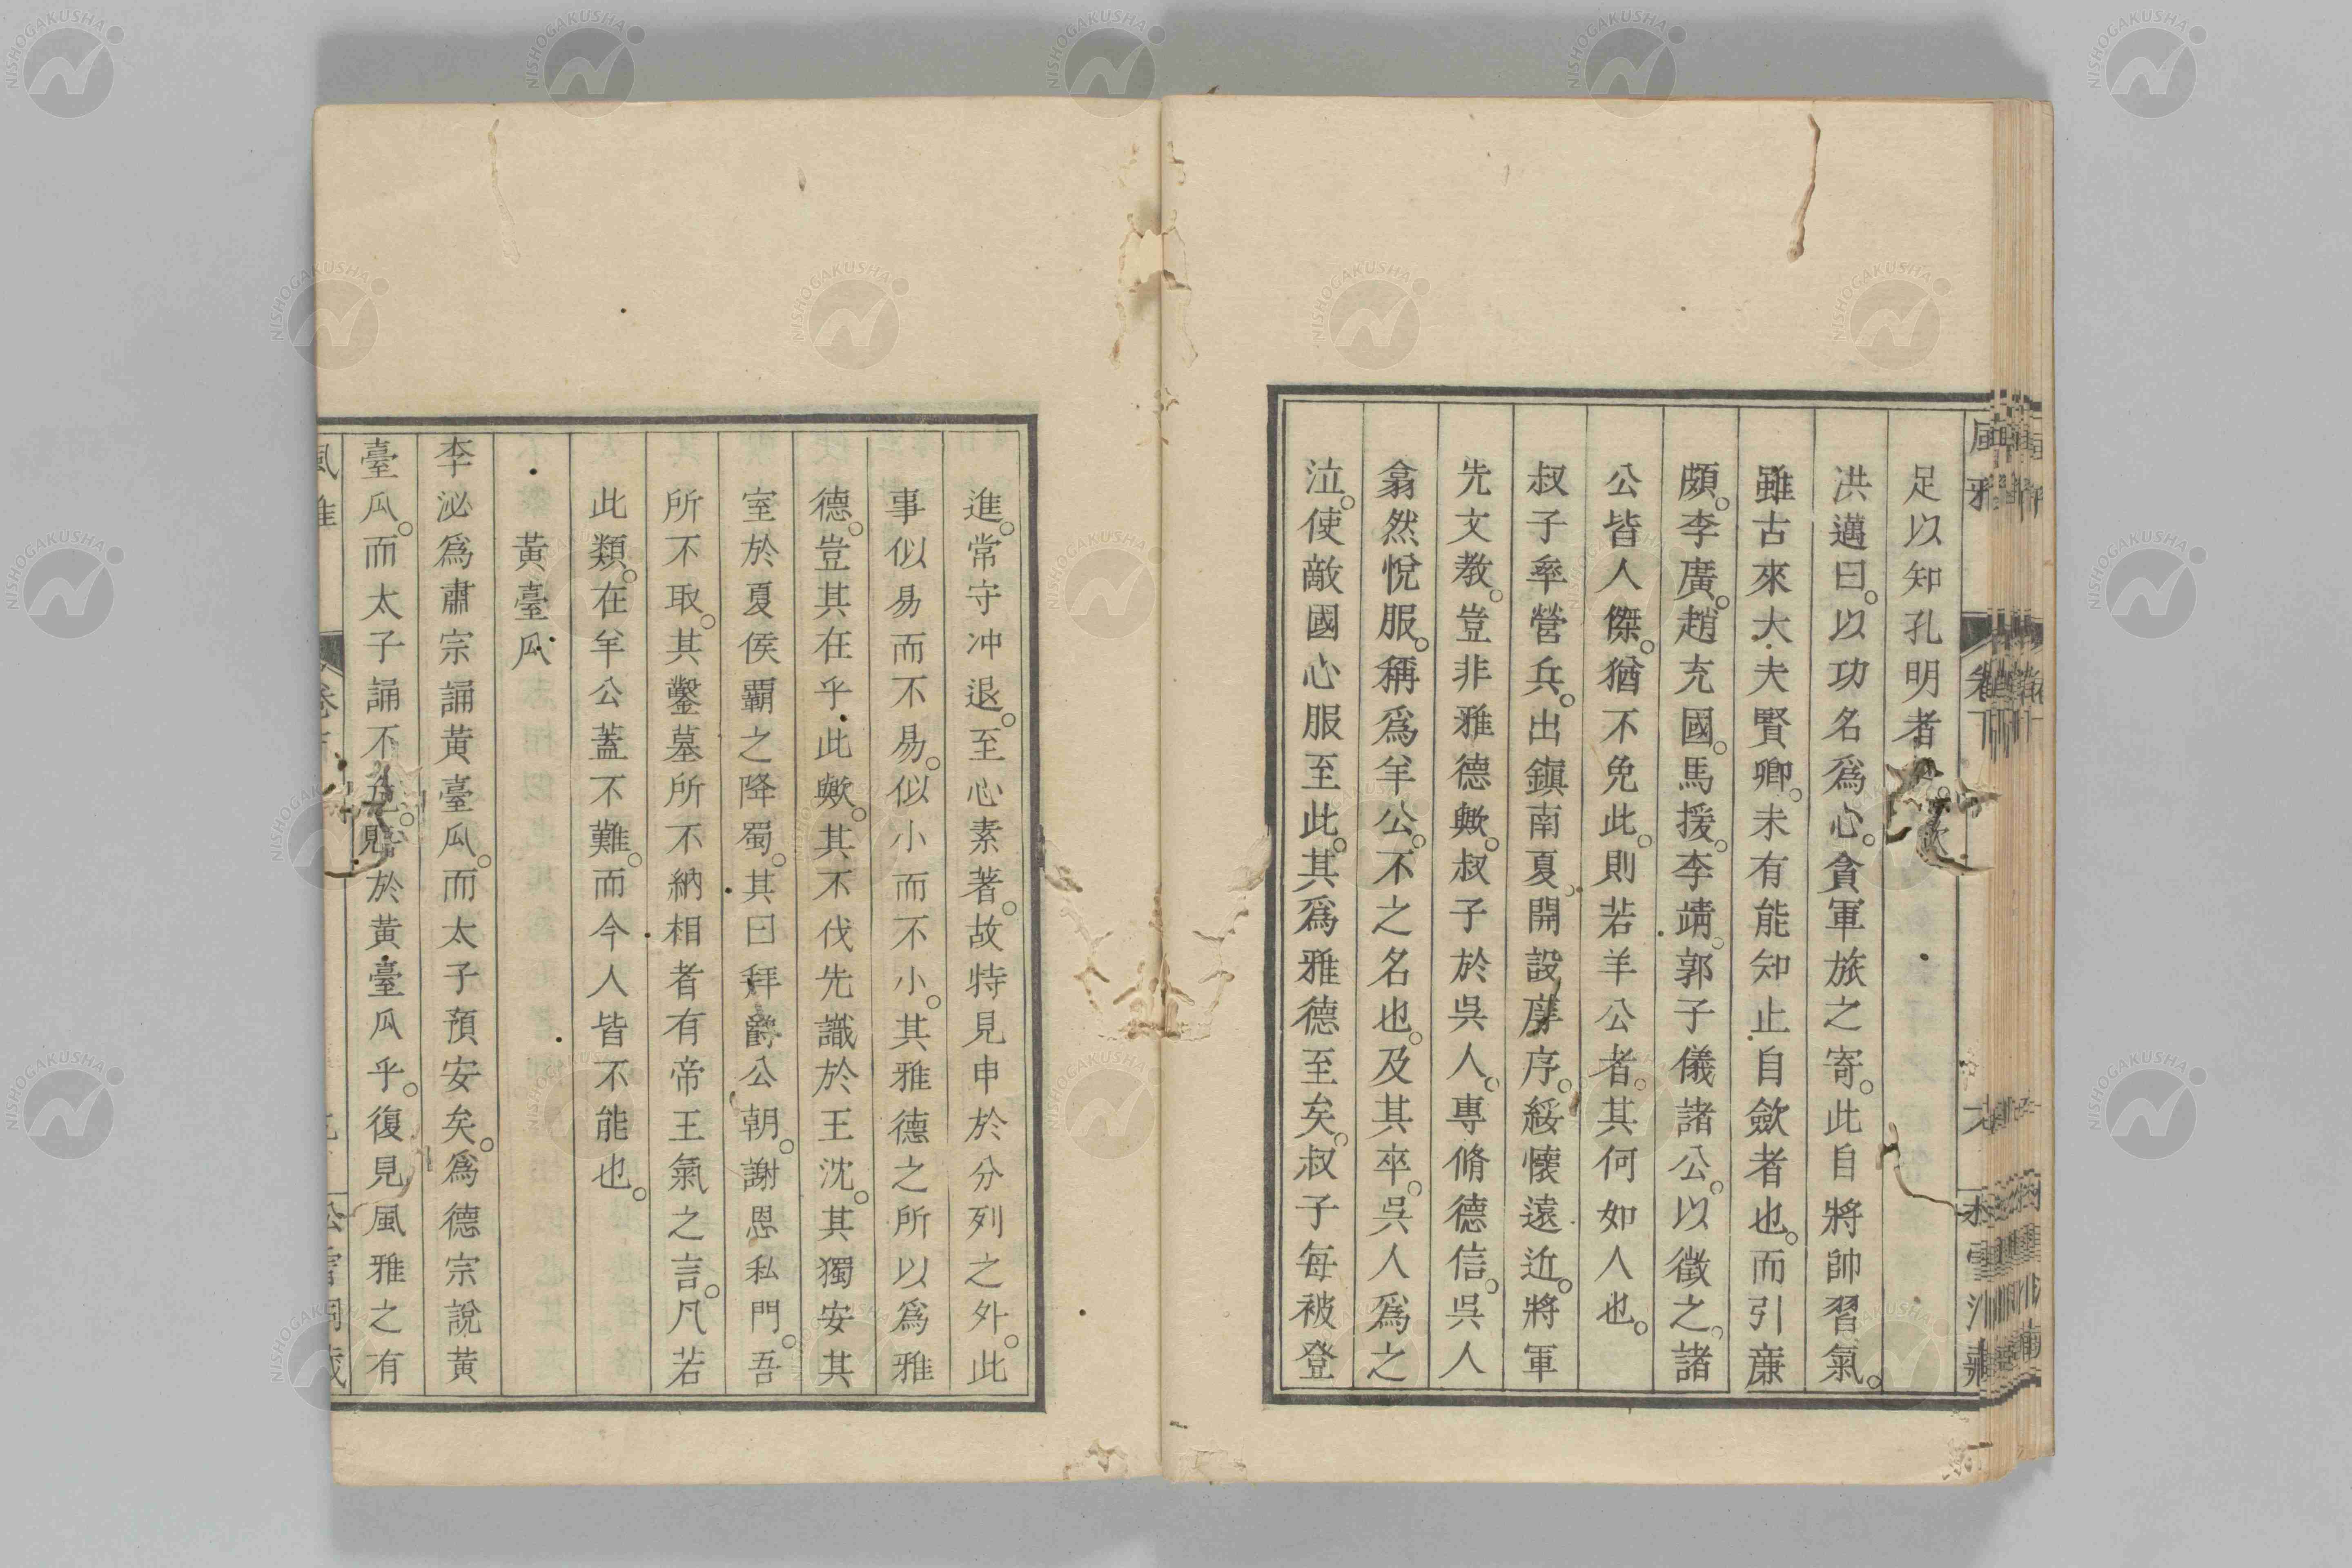 足以知孔明者
洪邁曰。以功名爲心。貪軍旅之寄。此自將帥習氣。
雖古來大夫賢卿。未有能知止自斂者也。而引廉
頗。李廣。趙充國。馬援。李靖。郭子儀諸公。以徵之。諸
公皆人傑。猶不免此。則若羊公者。其何如人也。
叔子率營兵。出鎭南夏。開設庠序。綏懷遠近。將軍
先文教。豈非雅德歟。叔子於吳人。專脩德信。吳人
翕然悅服。稱爲羊公。不之名也。及其卒。吳人爲之
泣。使敵國心服至此。其爲雅德至矣。叔子每被登
進。常守冲退。至心素著。故特見申於分列之外。此
事似易而不易。似小而不小。其雅德之所以爲雅
德。豈其在乎此歟。其不伐先識於王沈。其獨安其
室於夏侯覇之降蜀。其曰拜爵公朝。謝恩私門。吾
所不取。其鑿墓所不納相者有帝王氣之言。凡若
此類。在羊公蓋不難。而今人皆不能也。
黃臺瓜
李泌爲肅宗誦黃臺瓜。而太子預安矣。爲德宗說黃
臺瓜。而太子誦不危。賢於黃臺瓜乎。復見風雅之有
風雅
NISHOGAKUSHA